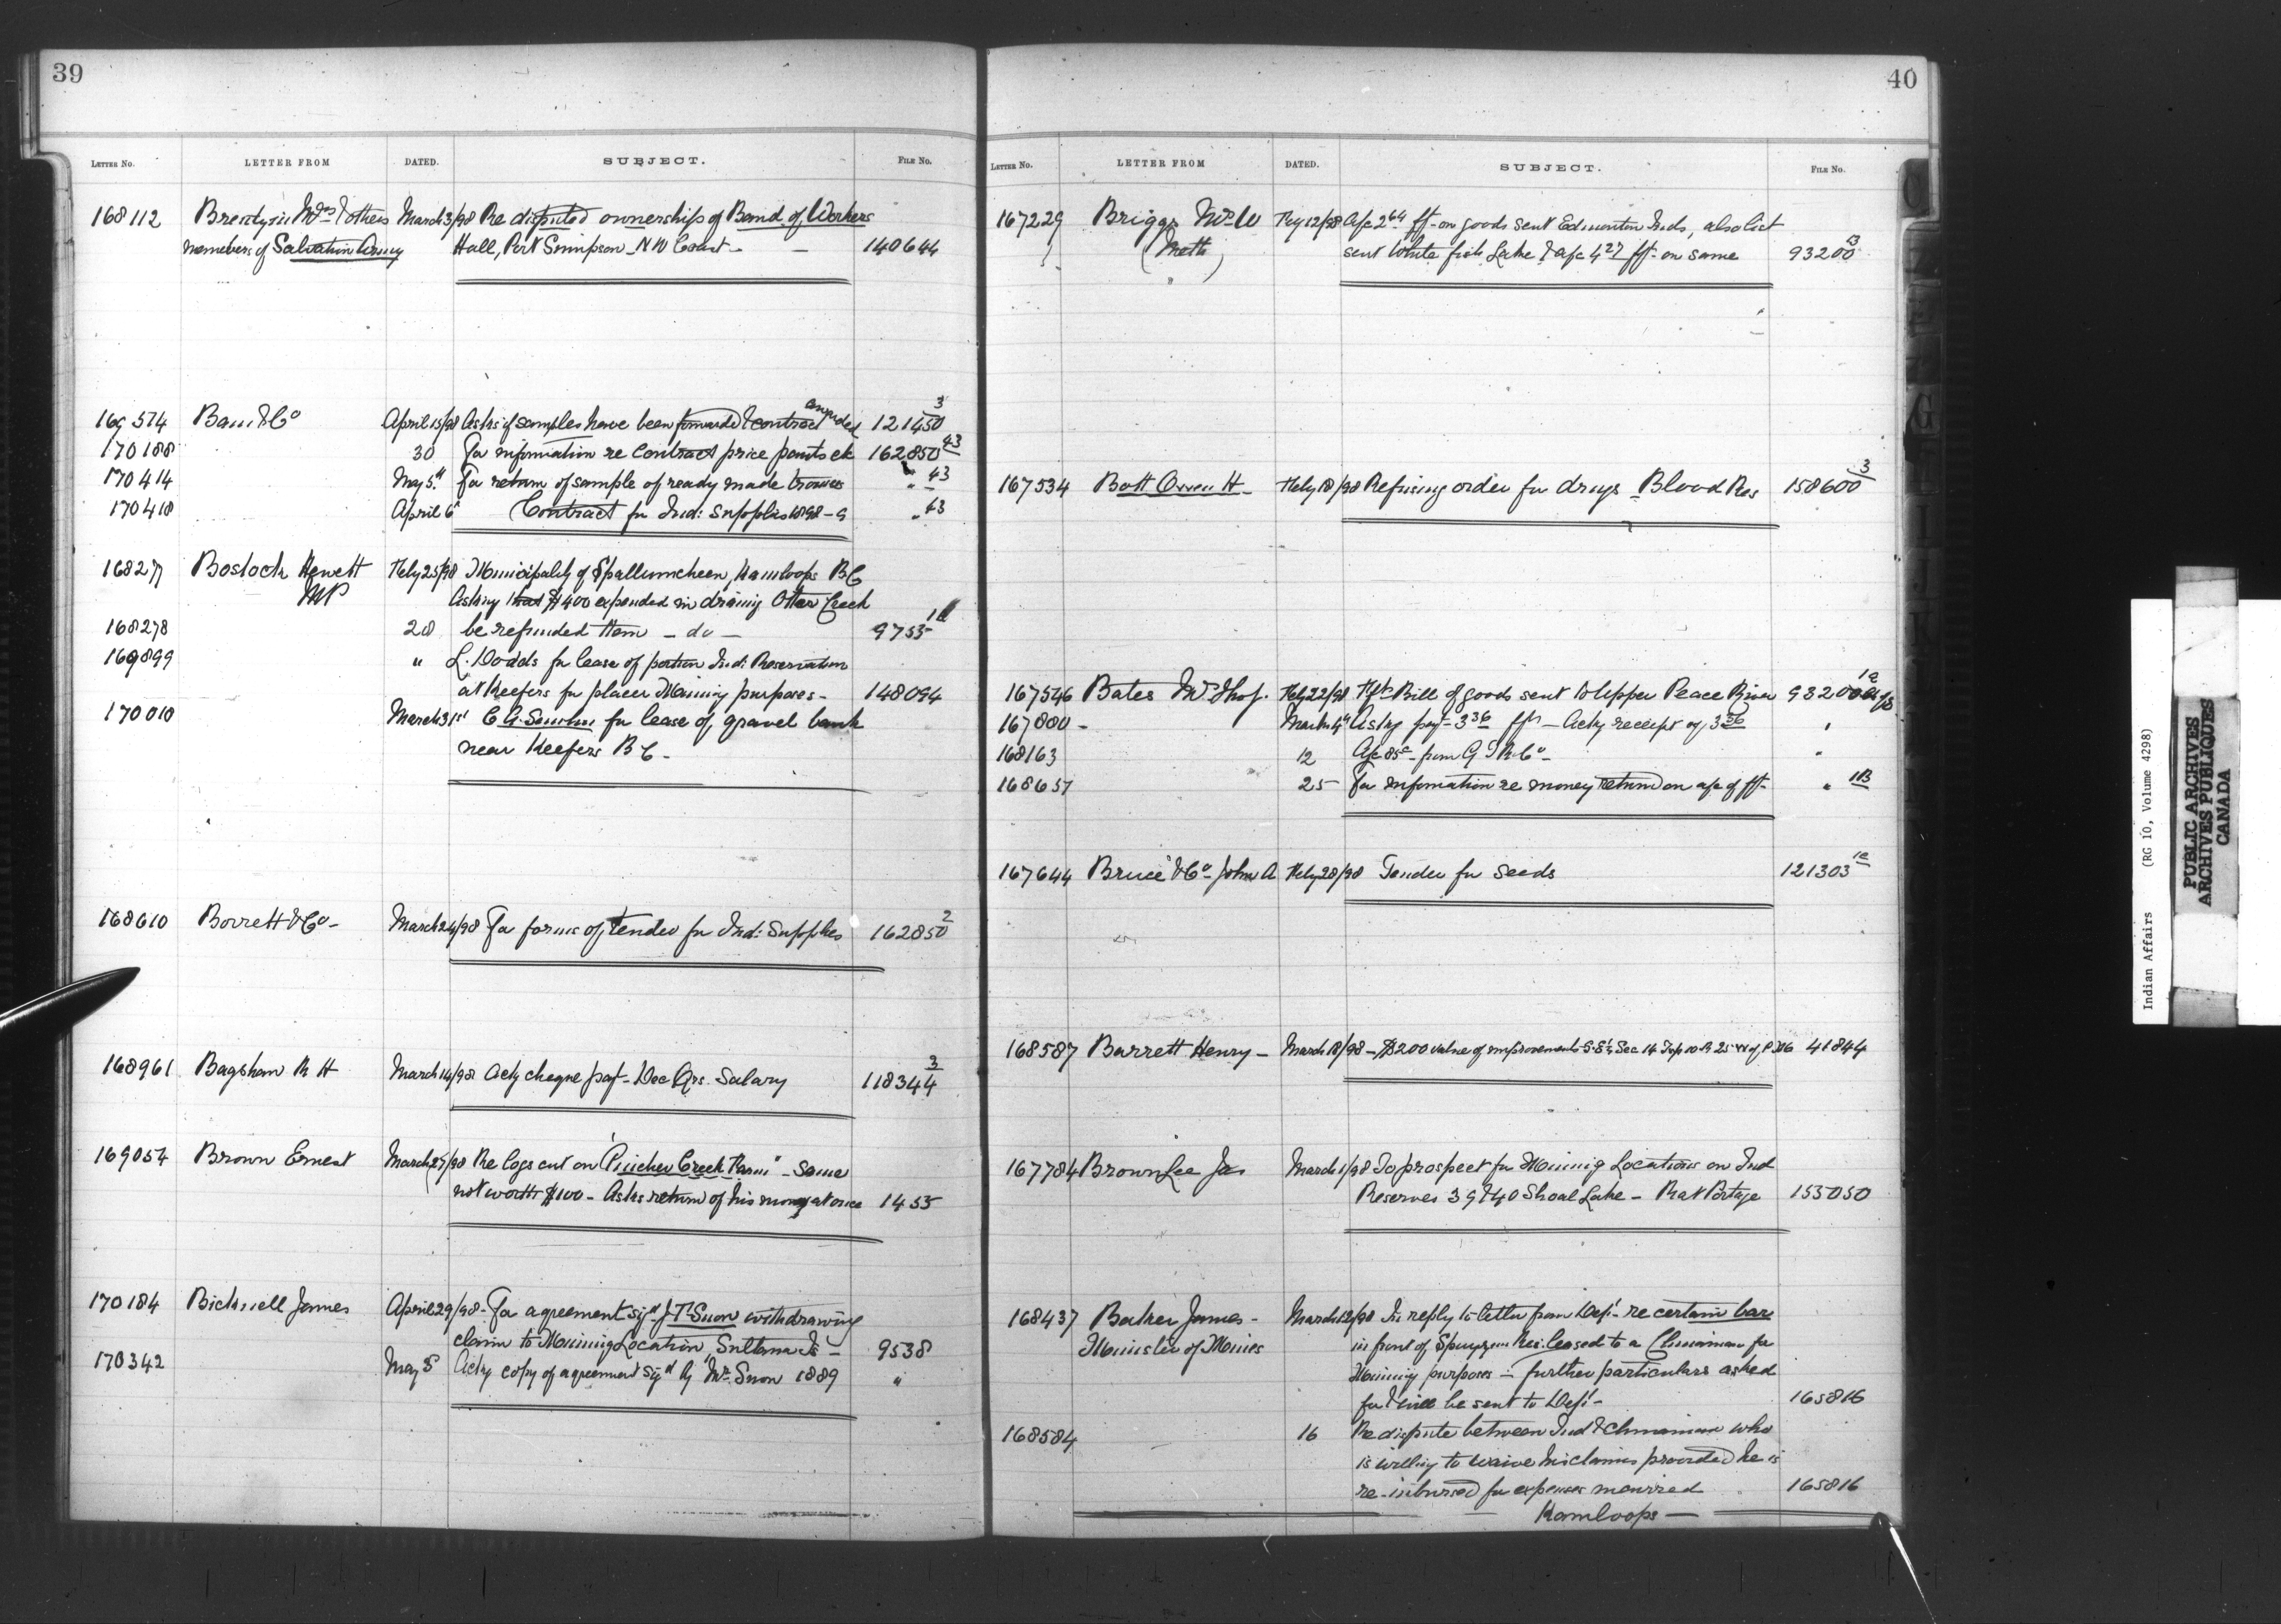 39
LETTER No. LETTER FROM DATED. SUBJECT. FILE No.
168112 Mrs & others March 3/98 Re disputed ownership of Band of Workers
members of Salvation Army Hall, Port Simpson - N W Coast - 140644
169574 & Co April 15/98 Asks if samples have been forwarded & contract awarded 121450 3
170188 30 For information re contract price pants etc 162850 43
170414 May 5th For return of sample of ready made trousers " 43
170418 April 6 Contract for Ind: Supplies 1898-9 " 43
168277 Bostock Hewett Feby 25/98 Municipality of Spallumcheen, Kamloops BC
MP Asking that $400 expended in draining Otter Creek
168278 28 be refunded them - do - 9755
169899 " L. Dodds for lease of portion Ind: Reservation
at Keefers for placer Mining purposes - 148094
170010 March 31st for lease of gravel bank
near Keefers B C -
168610 Borrett & Co - March 24/98 For forms of tender for Ind: Supplies 162850 2
168961 Bagshaw R H March 14/98 Ackg cheque payt - Dec Qrs. Salary 118344 3
169054 Brown Ernest March 29/98 Re logs cut on "Pincher Creek Farm" - Same
not worth $100 - Asks return of his money at once 1455
170184 Bicknell James April 29/98 - For agreement sigd withdrawing
claim to Mining Location, Sultana Is - 9538
170342 May 5 Ackg copy of agreement sigd by Mr. 1889 "
40
LETTER No. LETTER FROM DATED. SUBJECT. FILE No.
167229 Briggs Wm Feby 12/98 a/c 2 64 fft on goods sent Edmonton Inds, also list
(Meth) sent White fish Lake & a/c 4 27 fft on same 93200 13
167534 Bott Owen H - Feby 18/98 Refusing order for drugs - Blood Res 158600 3
167546 Bates Mr Thos. Feby 22/98 Bill of goods sent to Upper Peace River 93200
167800 - March 4th Asking payt - 3 36 fft - Ackg receipt of 3 36 "
168163 12 a/c 85c - from G T R Co - "
168657 25 For information re money returned on a/c of fft - " 11B
167644 Bruce & Co - John A Feby 28/98 Tender for seeds 121303
168587 Barrett Henry - March 18/98 - $200 value of improvements Sec 14 Twp 10 R 25 W of P M 41844
167784 BrownLee Jas March 1/98 To prospect for Mining Locations on Ind
Reserves 39 & 40 Shoal Lake - Rat Portage 155050
168437 Baker James - March 12/98 In reply to letter from Dept - re certain bar
Minister of Mines in front of Spuzzum Res: leased to a Chinaman for
Mining purposes - further particulars asked
for & will be sent to Dept - 165816
168584 16 Re dispute between Ind & Chinaman who
is willing to waive his claims provided he is
re-imbursed for expenses incurred 165816
Kamloops -
Indian Affairs (RG 10, Volume 4298)
PUBLIC ARCHIVES
ARCHIVES PUBLIQUES
CANADA